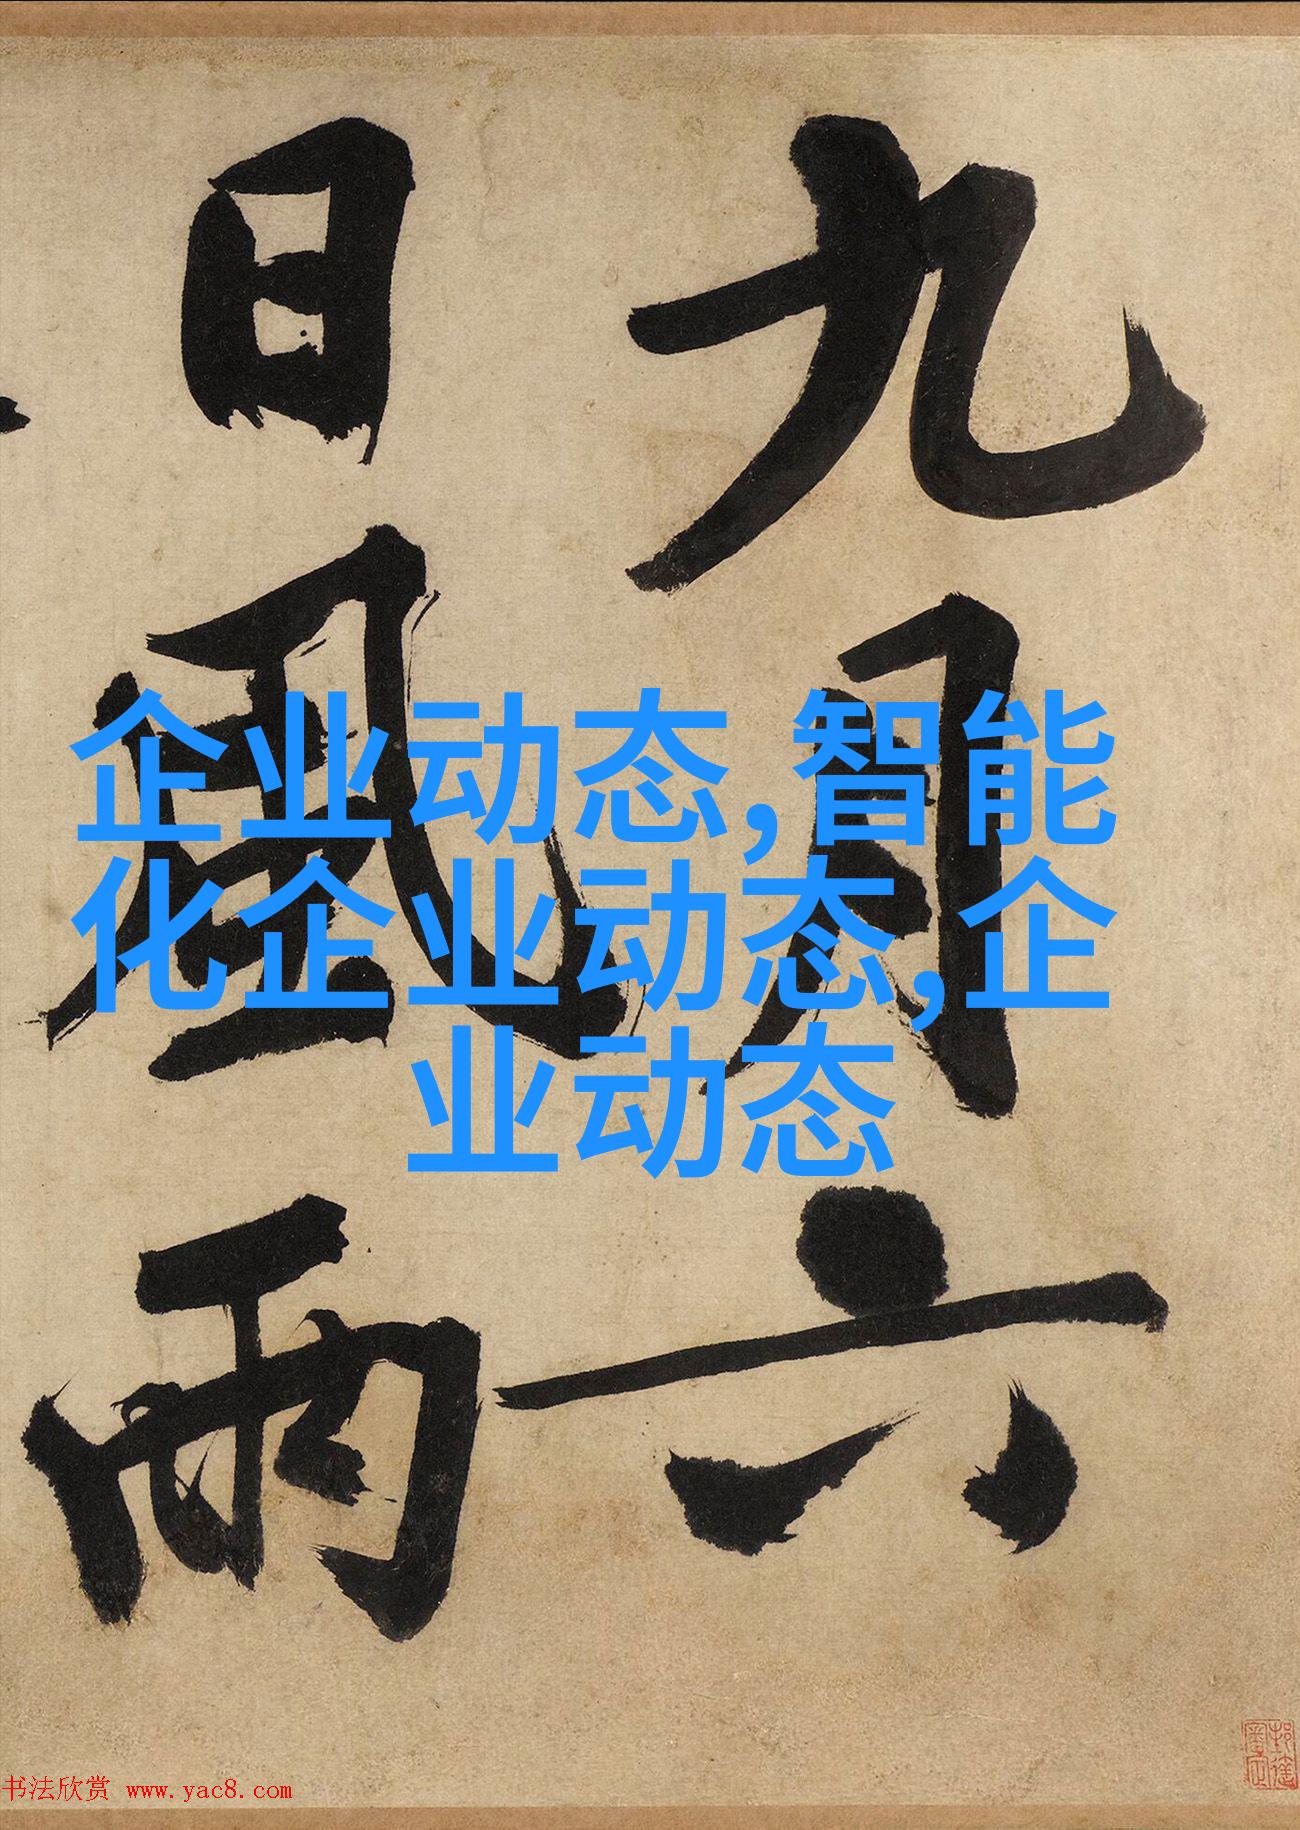 九月六
日風雨
企业动态,智能
化企业动态,企
业动态
书法欣赏 www.yac8.com